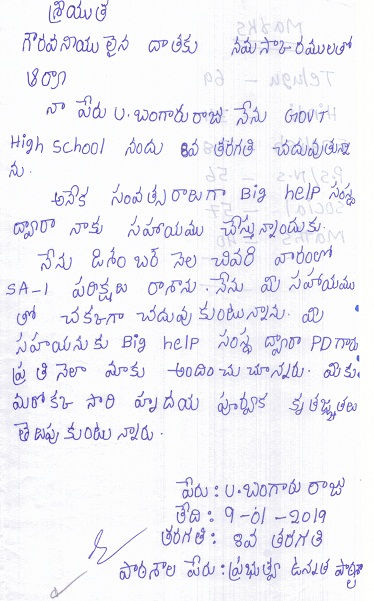 శ్రీయుత
గౌరవనీయులైన దాతకు నమస్కారములతో
ఆర్యా
నా పేరు U. బంగారు రాజు నేను GOVT
High School నందు 8వ తరగతి చదువుతున్నా
ను.
అనేక సంవత్సరాలుగా Big help సంస్థ
ద్వారా నాకు సహాయము చేస్తున్నందుకు.
నేను డిశంబర్ నెల చివరి వారంలో
SA-1 పరీక్షలు రాశాను. నేను మీ సహాయము
తో చక్కగా చదువుకుంటున్నాను. మీ
సహాయమును Big help సంస్థ ద్వారా PD గారు
ప్రతి నెలా మాకు అందించుచున్నారు. మీకు
మరొక్క సారి హృదయ పూర్వక కృతజ్ఞతలు
తెలుపుకుంటున్నారు.
పేరు : U. బంగారు రాజు
తేది : 9-01-2019
తరగతి : 8వ తరగతి
పాఠశాల పేరు : ప్రభుత్వ ఉన్నత పాఠశాల